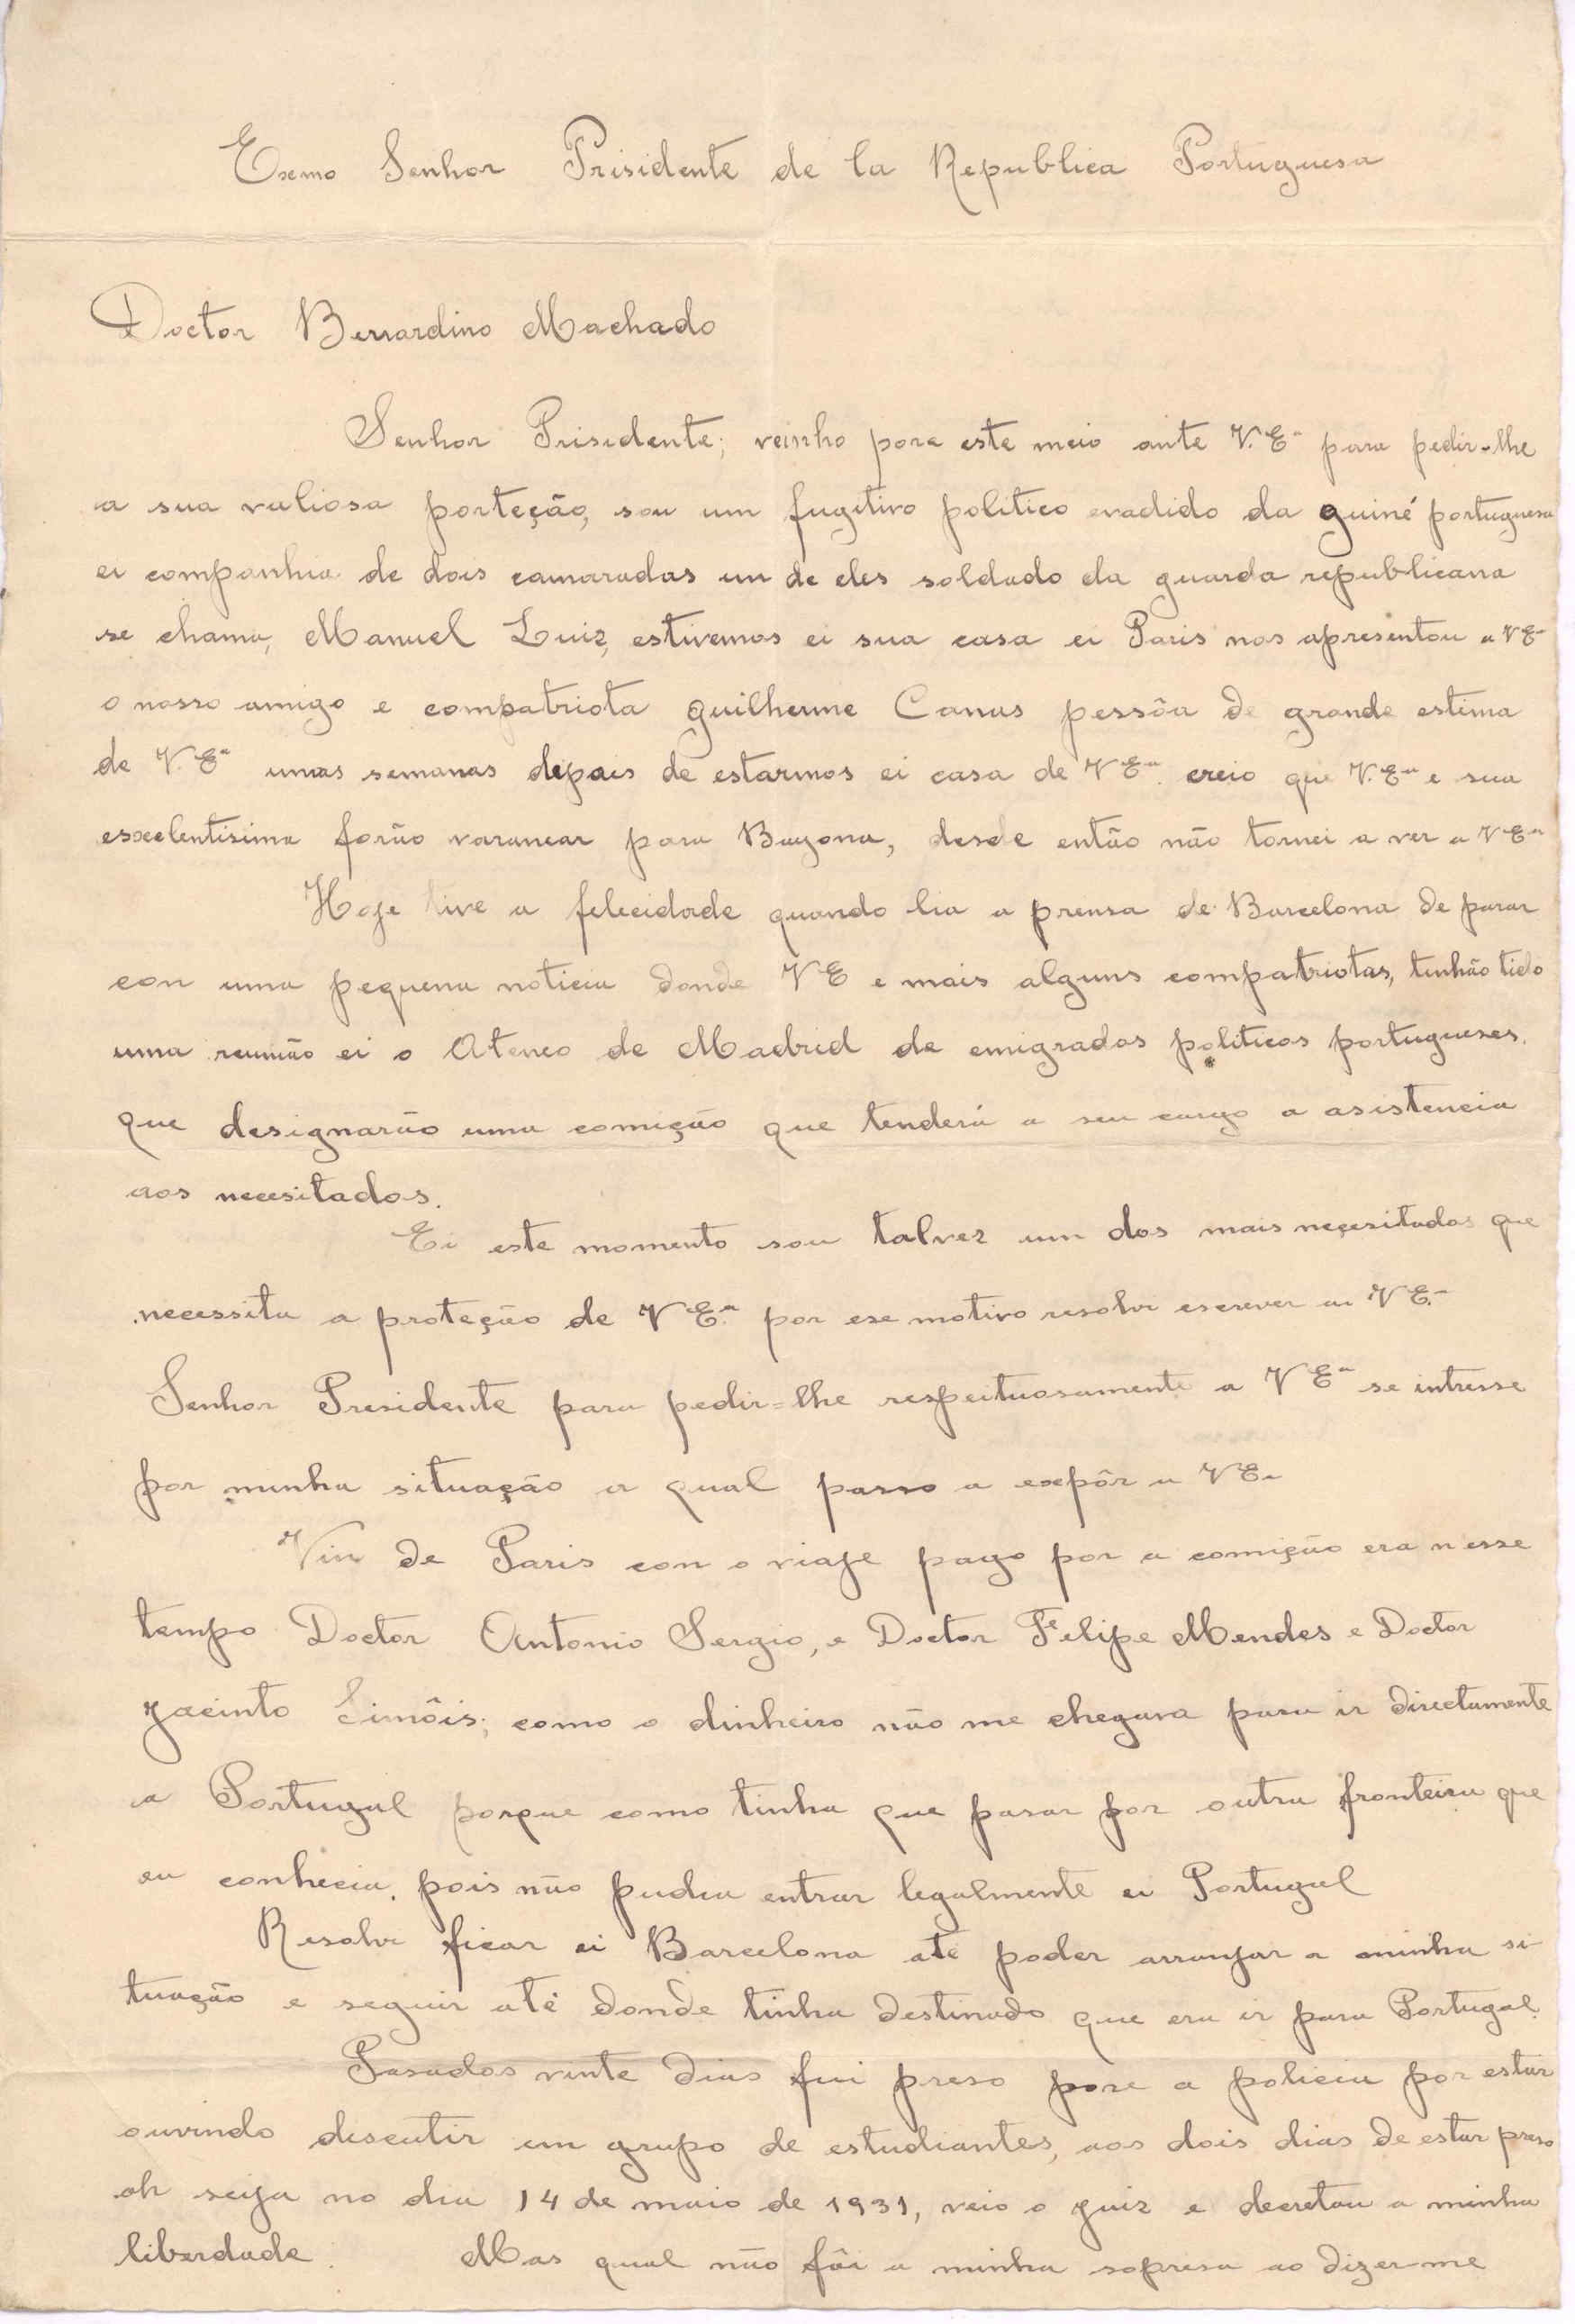 Exmo Senhor Prisidente de la Republica Portuguesa
Doctor Bernardino Machado
Senhor Prisidente; veinho pore este meio ante V. Eª para pedir-lhe
a sua valiosa porteção, sou um fugitivo politico evadido da guiné portuguesa
ei companhia de dois camaradas un de eles soldado da guarda republicana
se chama, Manuel Luiz, estivemos ei sua casa ei Paris nos apresentou a V Eª
o nosso amigo e compatriota guilherme Canas pessôa de grande estima
de V. Eª umas semanas depois de estarmos ei casa de V Eª. creio que V. Eª e sua
esxcelentisima forão varanear para Bayona, desde então não tornei a ver a V Eª
Hoje tive a felecidade quando lia a prensa de Barcelona de parar
con uma pequena noticia donde V E e mais alguns compatriotas, tinhão tido
uma reunião ei o Ateneo de Madrid de emigrados politicos portugueses.
que designarão uma comição que tenderá a seu cargo a asistencia
aos necesitados.
Ei este momento sou talvez um dos mais neçesitados que
necessita a proteção de V Eª. por ese motivo resolvi escrever a V E.ª
Senhor Presidente para pedir=lhe respeituosamente a V Eª se intresse
por minha situação a qual passo a expôr a V Eª
Vin de Paris con o viaje pago por a comição era n esse
tempo Doctor Antonio Sergio, e Doctor Felipe Mendes e Doctor
Jacinto Simôis; como o dinheiro não me chegava para ir directamente
a Portugal porque como tinha que pasar por outra fronteira que
eu conhecia. pois não pudia entrar legalmente ei Portugal
Resolvi ficar ei Barcelona até poder arranjar a minha si-
tuação e seguir até donde tinha destinado que era ir para Portugal.
Pasados vinte dias fui preso pore a policia por estar
ouvindo descutir um grupo de estudiantes, aos dois dias de estar preso
oh seija no dia 14 de maio de 1931, veio o juiz e decretou a minha
liberdade. Mas qual não fôi a minha sopresa ao dizer-me